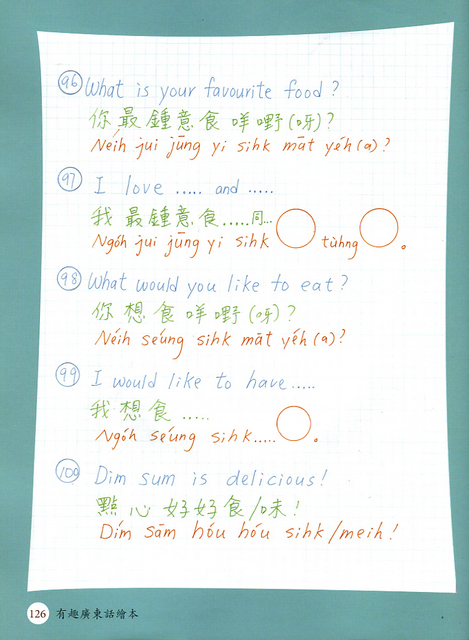 96 What is your favourite food?
你最鍾意食咩嘢(呀)?
Néih jui jūng yi sihk māt yéh(a)?
97 I love ..... and .....
我最鍾意食.....同...
Ngóh jui jūng yi sihk ○ tùhng ○。
98 What would you like to eat?
你想食咩嘢(呀)?
Néih séung sihk māt yéh(a)?
99 I would like to have.....
我想食.....
Ngóh séung sihk.....○。
100 Dim sum is delicious!
點心好好食/味!
Dím sām hóu hóu sihk/meih!
126 有趣廣東話繪本